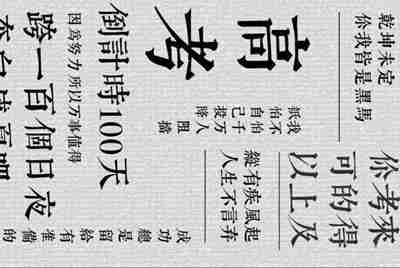 高考
乾坤未定
你我皆是黑馬
倒計時100天
因爲努力 所以万事值得
跨一百個日夜
我不怕千万人阻擋
祇怕自己投降
你可以
考的上
來得及
縱有疾風起
人生不言弃
成功總是留給有准備的